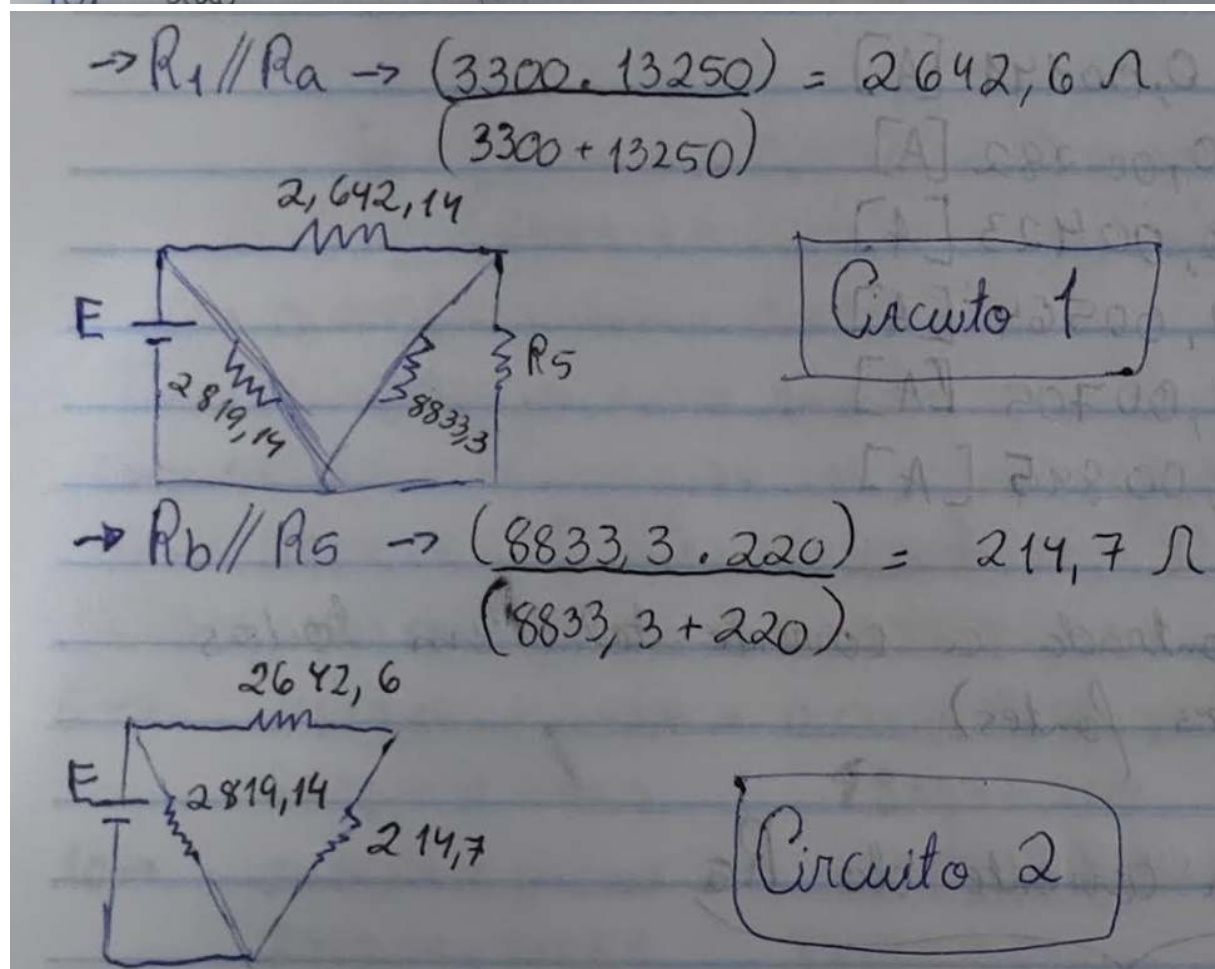 → R1 // Ra → (3300 . 13250) = 2642,6 Ω
(3300 + 13250)
2,642,14
E
2819,14
8833,3
R5
Circuito 1
→ Rb // R5 → (8833,3 . 220) = 214,7 Ω
(8833,3 + 220)
2642,6
E
2819,14
214,7
Circuito 2